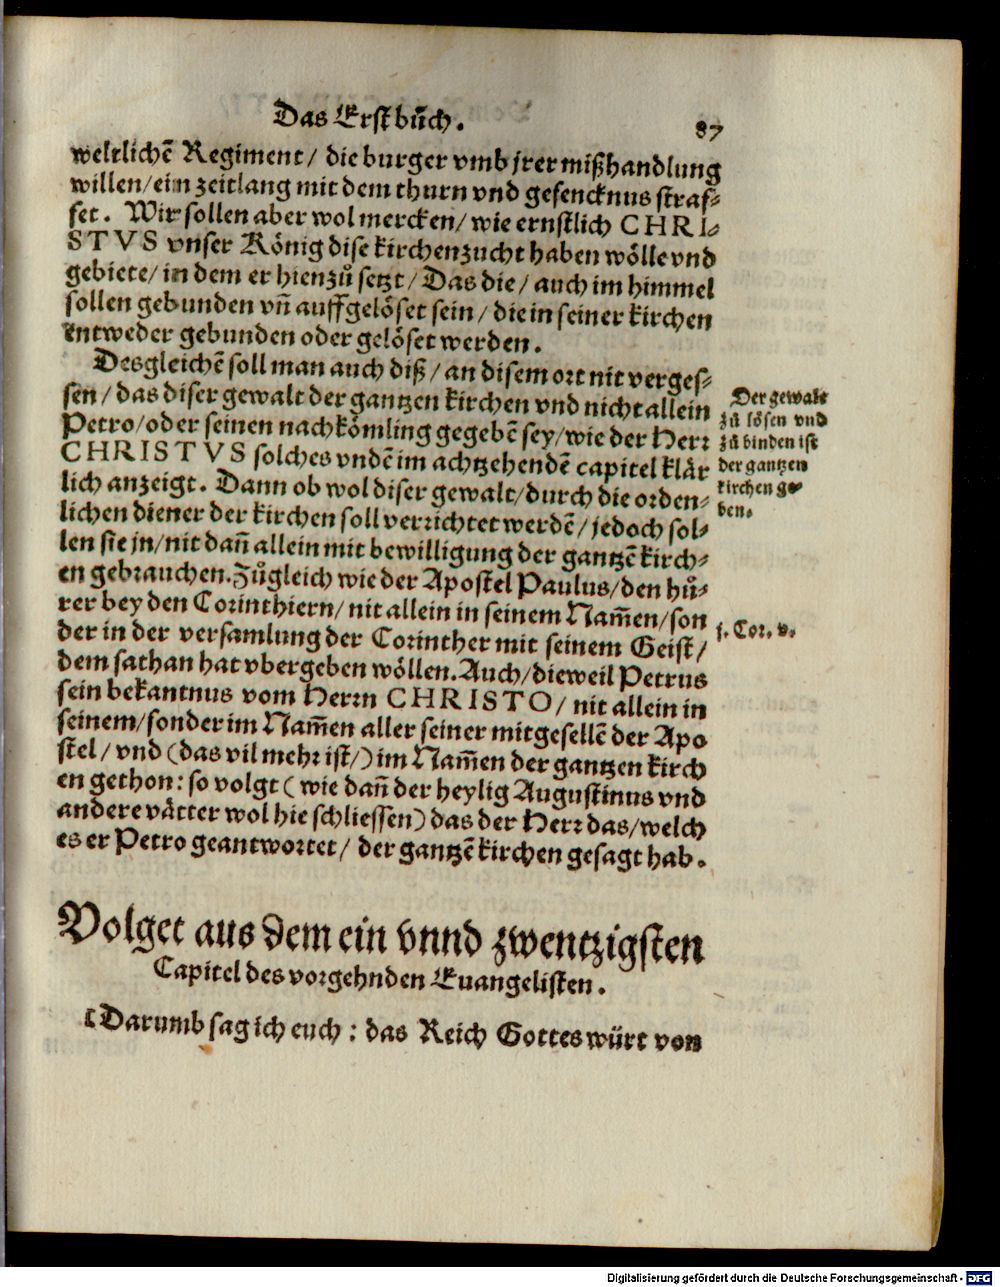 Das Erst buͦch.
87
weltlichē Regiment / die burger vmb jrer mißhandlung
willen / ein zeitlang mit dem thurn vnd gefencknus straf⸗
fet. Wir sollen aber wol mercken / wie ernstlich CHRI⸗
STVS vnser König dise kirchenzucht haben wölle vnd
gebiete / in dem er hienzuͦ setzt / Das die / auch im himmel
sollen gebunden vñ auffgelöset sein / die in seiner kirchen
entweder gebunden oder gelöset werden.
Desgleichē soll man auch diß / an disem ort nit verges⸗
sen / das diser gewalt der gantzen kirchen vnd nicht allein
Petro / oder seinen nachkömling gegebē sey / wie der Herr
CHRISTVS solches vndē im achtzehendē capitel klär
lich anzeigt. Dann ob wol diser gewalt / durch die orden⸗
lichen diener der kirchen soll verrichtet werdē / jedoch sol⸗
len sie jn / nit dañ allein mit bewilligung der gantzē kirch⸗
en gebrauchen. Zuͦgleich wie der Apostel Paulus / den huͦ⸗
rer bey den Corinthiern / nit allein in seinem Nam̃en / son
der in der versamlung der Corinther mit seinem Geist /
dem sathan hat vbergeben wöllen. Auch / dieweil Petrus
sein bekantnus vom Herrn CHRISTO / nit allein in
seinem / sonder im Nam̃en aller seiner mitgesellē der Apo
stel / vnd (das vil mehr ist /) im Nam̃en der gantzen kirch
en gethon: so volgt (wie dañ der heylig Augustinus vnd
andere vätter wol hie schliessen) das der Herr das / welch
es er Petro geantwortet / der gantzē kirchen gesagt hab.
Der gewalt
zuͦ lösen vnd
zuͦ binden ist
der gantzen
kirchen ge
ben.
j. Cor. v.
Volget aus dem ein vnnd zwentzigsten
Capitel des vorgehnden Euangelisten.
[Darumb sag ich euch: das Reich Gottes würt von
Digitalisierung gefördert durch die Deutsche Forschungsgemeinschaft - DFG